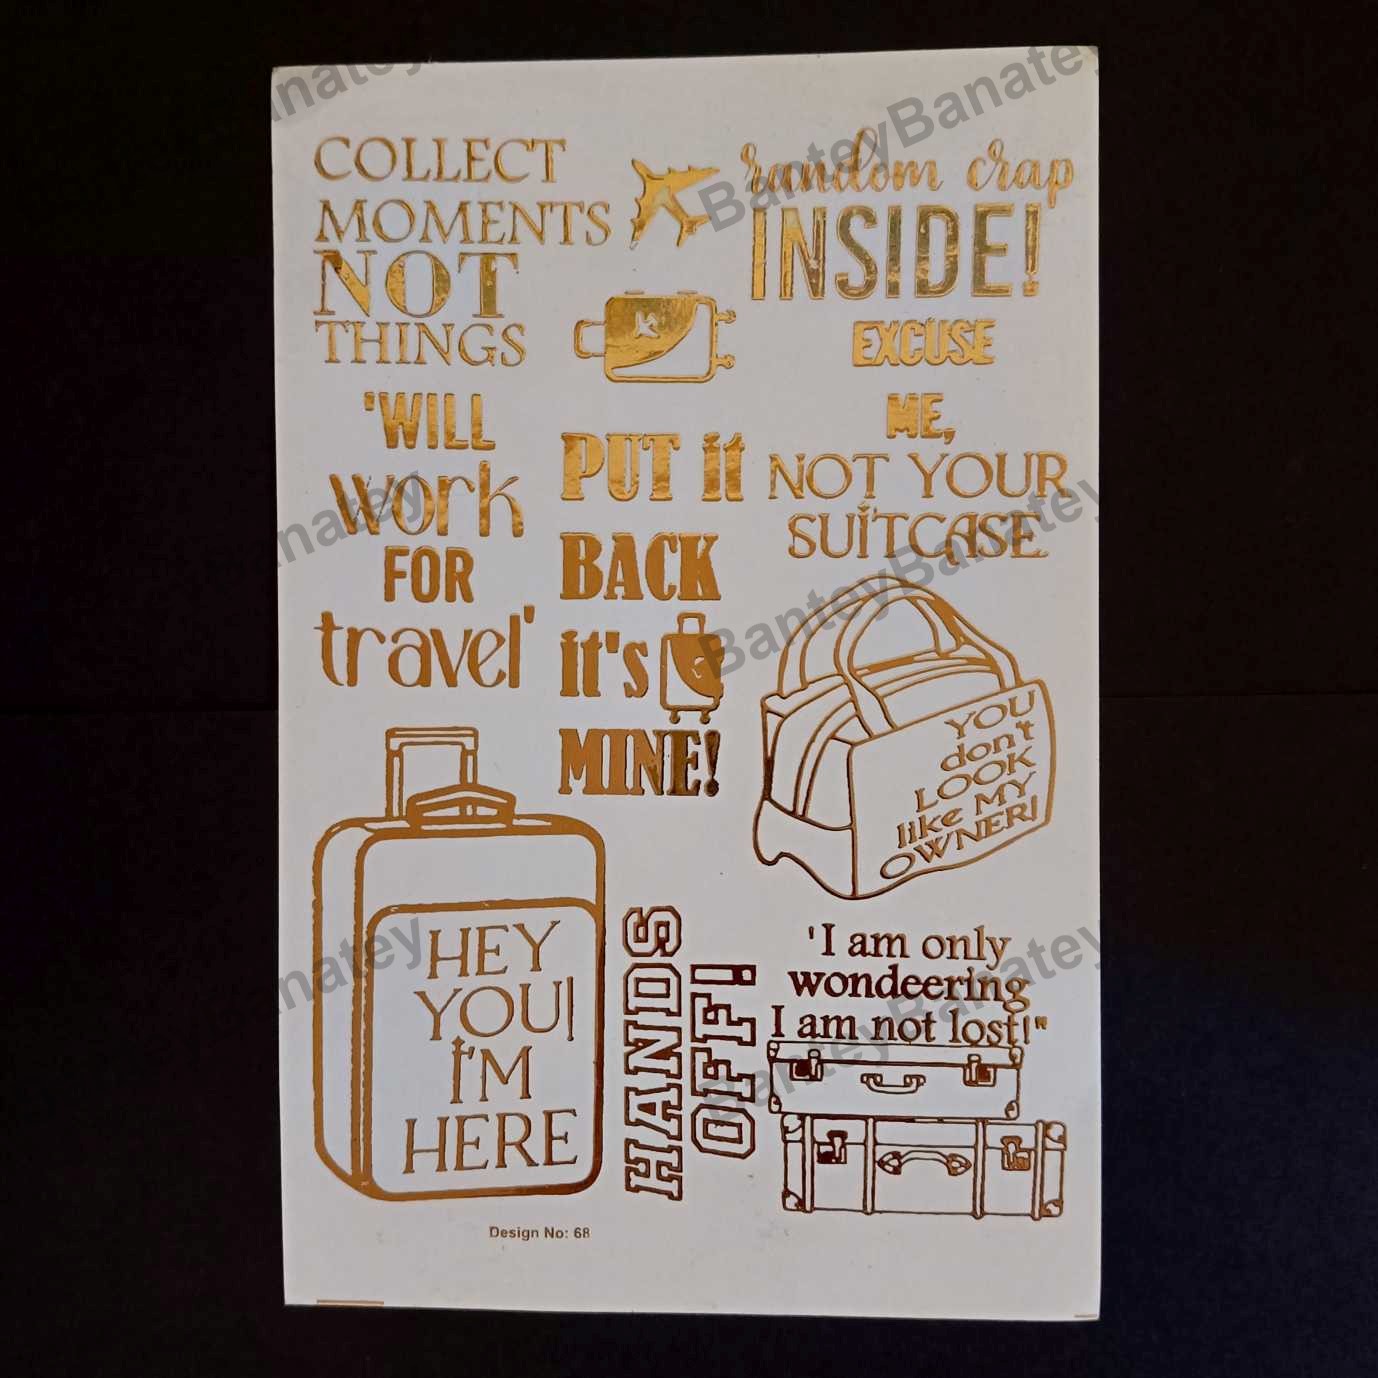 COLLECT
MOMENTS
NOT
THINGS
random crap
INSIDE!
EXCUSE
ME,
NOT YOUR
SUITCASE.
'WILL
work
FOR
travel'
PUT it
BACK
it's
MINE!
YOU
don't
LOOK
like MY
OWNER!
HEY
YOU!
I'M
HERE
HANDS
OFF!
'I am only
wondeering
I am not lost!"
Design No: 68
BanteyBanatey
BanteyBanatey
BanteyBanatey
anatey
anatey
anatey